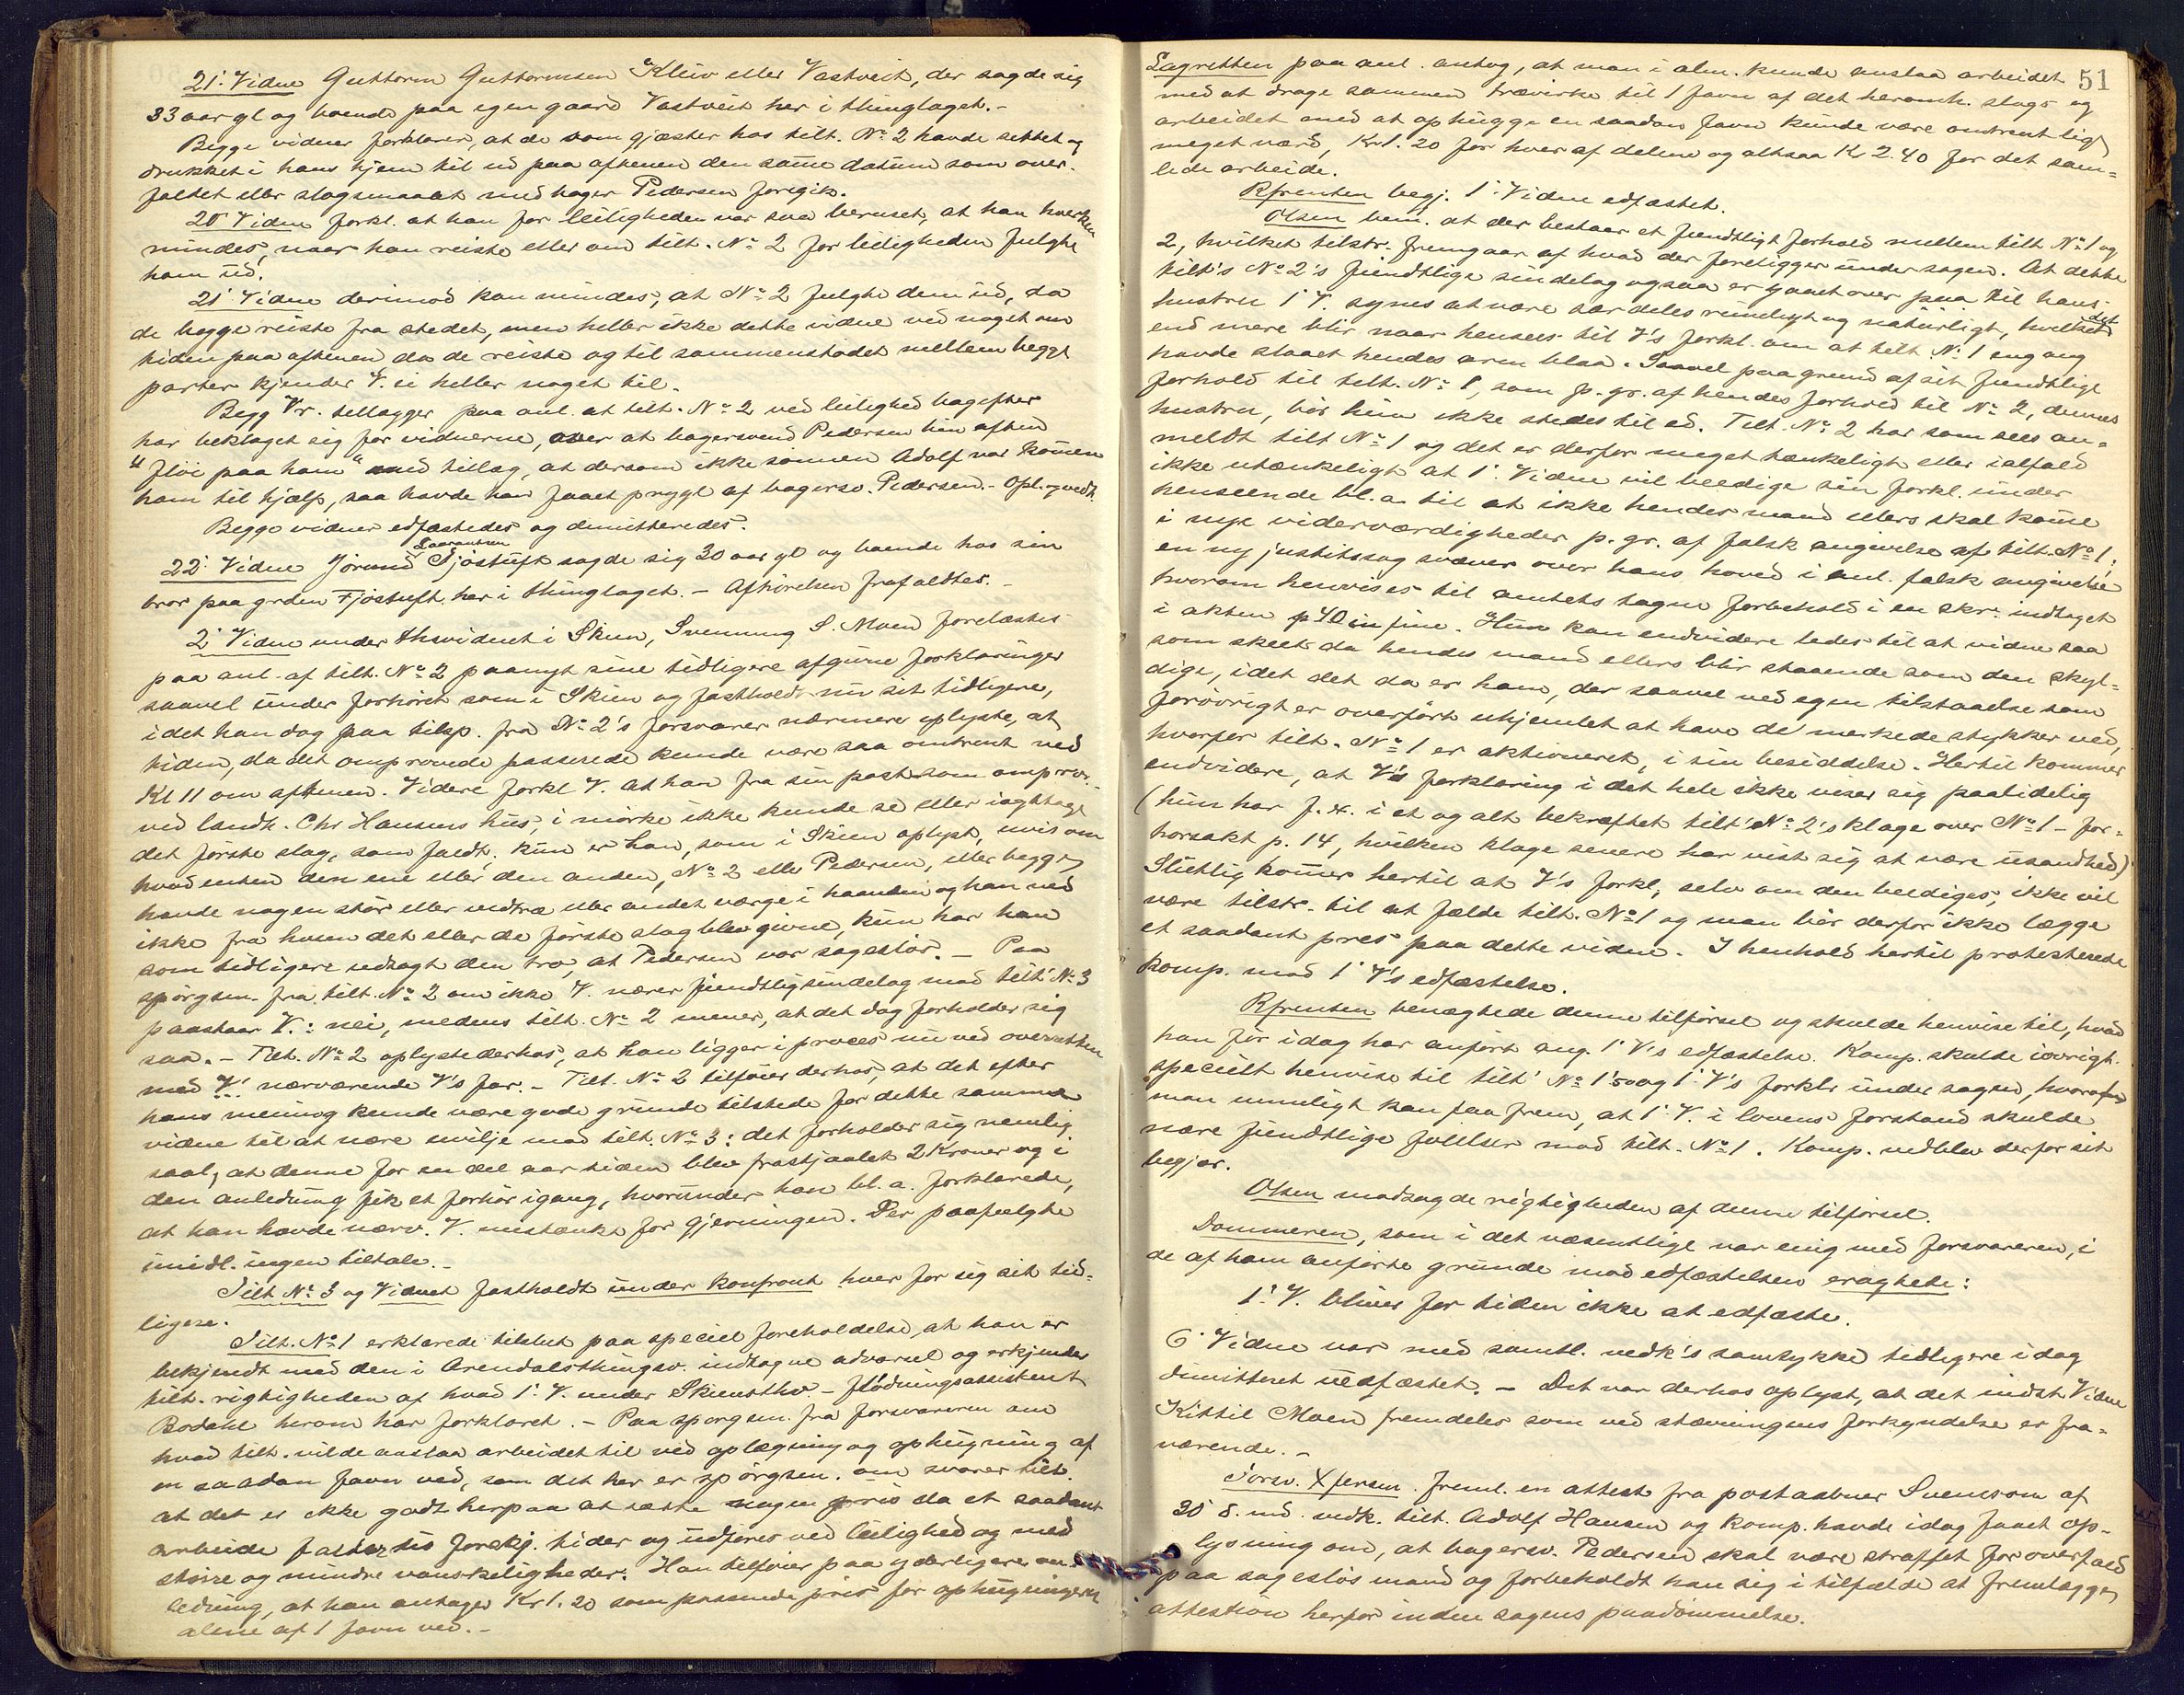 21' Vidne Guttorm Guttormsen Kleiv eller Vastveit, der sagde sig
33 aar gl og boende paa egen gaard Vastveit her i thinglaget.-
Begge vidner forklarer, at de som gjæster hos tilt. No 2 havde siddet og
drukket i hans hjem til ud paa aftenen den samme datum som over-
faldet eller slagsmaalet med bager Pedersen foregik.
20' Vidne forkl. at han for leiligheden var saa beruset, at han hverken
mindes, naar han reiste eller om tilt. No 2 for leiligheden fulgte
ham ud.
21' Vidne derimod kan mindes, at No 2 fulgte dem ud, da
de begge reiste fra stedet, men heller ikke dette vidne ved noget om
tiden paa aftenen da de reiste og til sammenstødet mellem begge
parter kjender V. ei heller noget til.
Begg Vr. tillægger paa anl. at tilt. No 2 ved leilighed bagefter
har beklaget sig for vidnerne, over at bagersvend Pedersen hin aften
"fløi paa ham" med tillæg, at dersom ikke sønnen Adolf var kommen
ham til hjælp, saa havde han faaet prygl af bagersv. Pedersen.- Opl. og vedt.
Begge vidner edfæstedes og demitteredes.
22' Vidne Jørund Saaransen Tjøstuft sagde sig 30 aar gl og boende hos sin
bror paa grden Tjøstuft her i thinglaget.- Afhørelsen frafaldtes.-
2' Vidne under thsvidnet i Skien, Svenning S. Moen forelæstes
paa anl. af tilt. No 2 paanyt sine tidligere afgivne forklaringer
saavel under forhøret som i Skien og fastholdt nu sit tidligere,
idet han dog paa tilsp. fra No 2's forsvarer nærmere oplyste, at
tiden, da det omprovede passerede kunde være saa omtrent ved
Kl 11 om aftenen. Videre forkl V. at han fra sin post som omprov.
ved landh. Chr Hansens hus, i mørke ikke kunde se eller iagttage
det første slag, som faldt. Kun er han, som i Skien oplyst, uvis om
hvad enten den ene eller den anden, No 2 eller Pedersen, eller begge
havde nogen stør eller vedtræ eller andet værge i haanden og han ved
ikke fra hvem det eller de første slag blev givne, kun har han
som tidligere udsagt den tro, at Pedersen var sagesløs.- Paa
spørgsm. fra tilt. No 2 om ikke V. nærer fiendtlig sindelag mod tilt' No 3
paastaar V.: nei, medens tilt. No 2 mener, at det dog forholder sig
saa.- Tilt. No 2 oplyste derhos, at han ligger i proces nu ved overretten
med V.' nærværende V's far.- Tilt. No 2 tilføier derhos, at det efter
hans mening kunde være gode grunde tilstede for dette samme
vidne til at nære uvilje mod tilt. No 3: det forholder sig nemlig
saal, at denne for en del aar siden blev frastjaalet 2 Kroner og i
den anledning fik et forhør igang, hvorunder han bl. a. forklarede,
at han havde nærv. V. mistænkt for gjerningen. Der paafulgte
imidl. ingen tiltale.-
Tilt No 3 og Vidnet fastholdt under konfront hver for sig sit tid-
ligere.
Tilt. No 1 erklærede tilslut paa speciel foreholdelse, at han er
bekjendt med den i Arendalsthingsv. indtagne advarsel og erkjender
tilt. rigtigheden af hvad 1' V. under Skiensthv - fløtningsassistent
Bodahl herom har forklaret.- Paa spørgsm. fra forsvareren om
hvad tilt. vilde anslaa arbeidet til ved oplægning og ophugning af
en saadan favn ved, som det her er spørgsm. om svarer tilt.
at det er ikke godt herpaa at sætte nogen pris da et saadant
arbeide falder til forskj. tider og udføres ved leilighed og med
større og mindre vanskeligheder. Han tilføier paa yderligere an-
ledning, at han antager Kr 1.20 som passende pris for ophugningen
alene af 1 favn ved.-
51
Lagretten paa anl. antog, at man i alm. kunde anslaa arbeidet
med at drage sammen trævirke til 1 favn af det heromh. slags og
arbeidet med at ophugge en saadan favn kunde være omtrent lige
meget værd, Kr 1.20 for hver af delene og altsaa Kr 2.40 for det sam-
lede arbeide.
Rfrenten begj. 1' Vidne edfæstet.
Olsen bem. at der bestaar et fiendtligt forhold mellem tilt No 1 og
2, hvilket tilstr. fremgaar af hvad der foreligger under sagen. At dette
tilt's No 2's fiendtlige sindelag ogsaa er gaaet over paa til hans
hustru 1' V. synes at være særdeles rimeligt og naturligt, hvilket det
end mere blir naar hensees til V's forkl. om at tilt No 1 engang
havde slaaet hendes arm blaa. Saavel paa grund af sit fiendtlige
forhold til tilt. No 1, som p. gr. af hendes forhold til No 2, dennes
hustru, bør hun ikke stedes til ed. Tilt. No 2 har som sees an-
meldt tilt No 1 og det er derfor meget tænkeligt eller ialfald
ikke utænkeligt at 1' Vidne vil beedige sin forkl. under
henseende bl. a. til at ikke hendes mand ellers skal komme
i nye viderværdigheder p. gr. af falsk angivelse af tilt. No 1;
en ny justitssag svæver over hans hoved i anl. falsk angivelse
hvorom henvises til amtets tagne forbehold i en skr. indtaget
i akten p 40 in fine. Hun kan endvidere ledes til at vidne saa
som skeet da hendes mand ellers blir staaende som den skyl-
dige, idet det da er ham, der saavel ved egen tilstaaelse som
forøvrigt er overført uhjemlet at have de merkede stykker ved,
hvorfor tilt. No 1 er aktioneret, i sin besiddelse. Hertil kommer
endvidere, at V's forklaring i det hele ikke viser sig paalidelig
(hun har f. x. i et og alt bekræftet tilt' No 2's klage over No 1 - for-
horsakt p. 14, hvilken klage senere har vist sig at være usandhed)
Sluttlig kommer hertil at V's forkl., selv om den beediges, ikke vil
være tilstr. til at fælde tilt. No 1 og man bør derfor ikke lægge
et saadant pres paa dette vidne. I henhold hertil protesterede
Komp. mod 1' V's edfæstelse.
Rfrenten benægtede denne tilførsel og skulde henvise til, hvad
han før idag har anført ang. 1' V's edfæstelse. Komp. skulde iøvrigt
specielt henvise til tilt' No 1's og 1' V's forklr under sagen, hvoraf
man umuligt kan faa frem, at 1' V. i lovens forstand skulde
nære fiendtlige følelser mod tilt. No 1. Komp. vedblev derfor sit
begjær.
Olsen modsagde rigtigheden af denne tilførsel.
Dommeren, som i det væsentlige var enig med forsvareren, i
de af ham anførte grunde mod edfæstelsen eragtede:
1' V. bliver for tiden ikke at edfæste.
6' Vidne var med samtl. vedk's samtykke tidligere idag
dimitteret uedfæstet.- Det var derhos oplyst, at det indst. Vidne
Kittil Moen fremdeles som ved stævningens forkyndelse er fra-
værende.-
Forsv. Xfersen freml. en attest fra postaabner Svennsom af
20' d. md. vedk. tilt. Adolf Hansen og komp. havde idag faaet op-
lysning om, at bagersv. Pedersen skal være straffet for overfald
paa sagesløs mand og forbeholdt han sig i tilfælde at fremlægge
attestion herfor inden sagens paadømmelse.